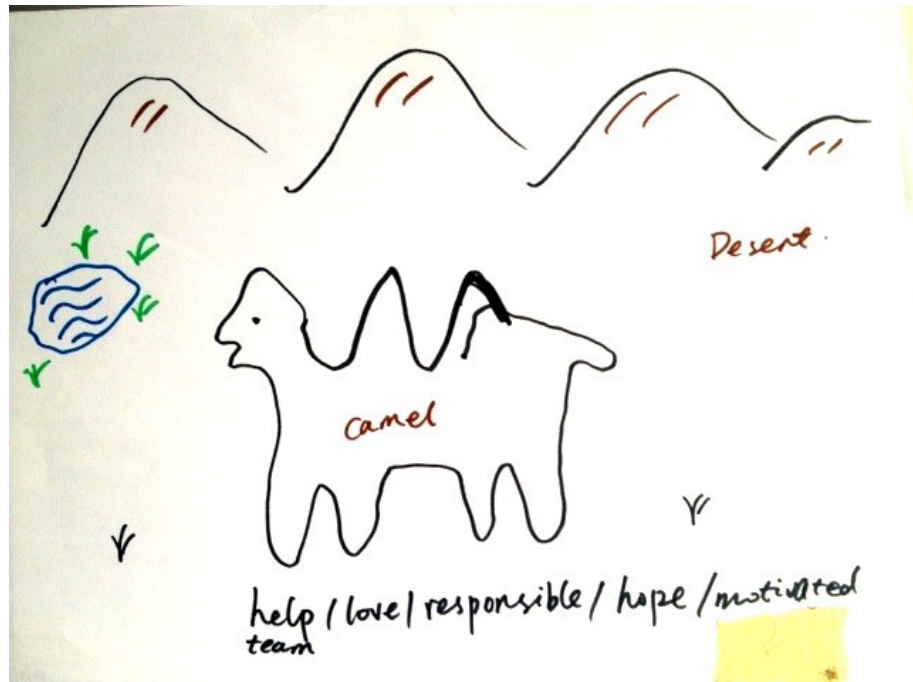 Desert.
Camel
help / love / responsible / hope / motivated
team